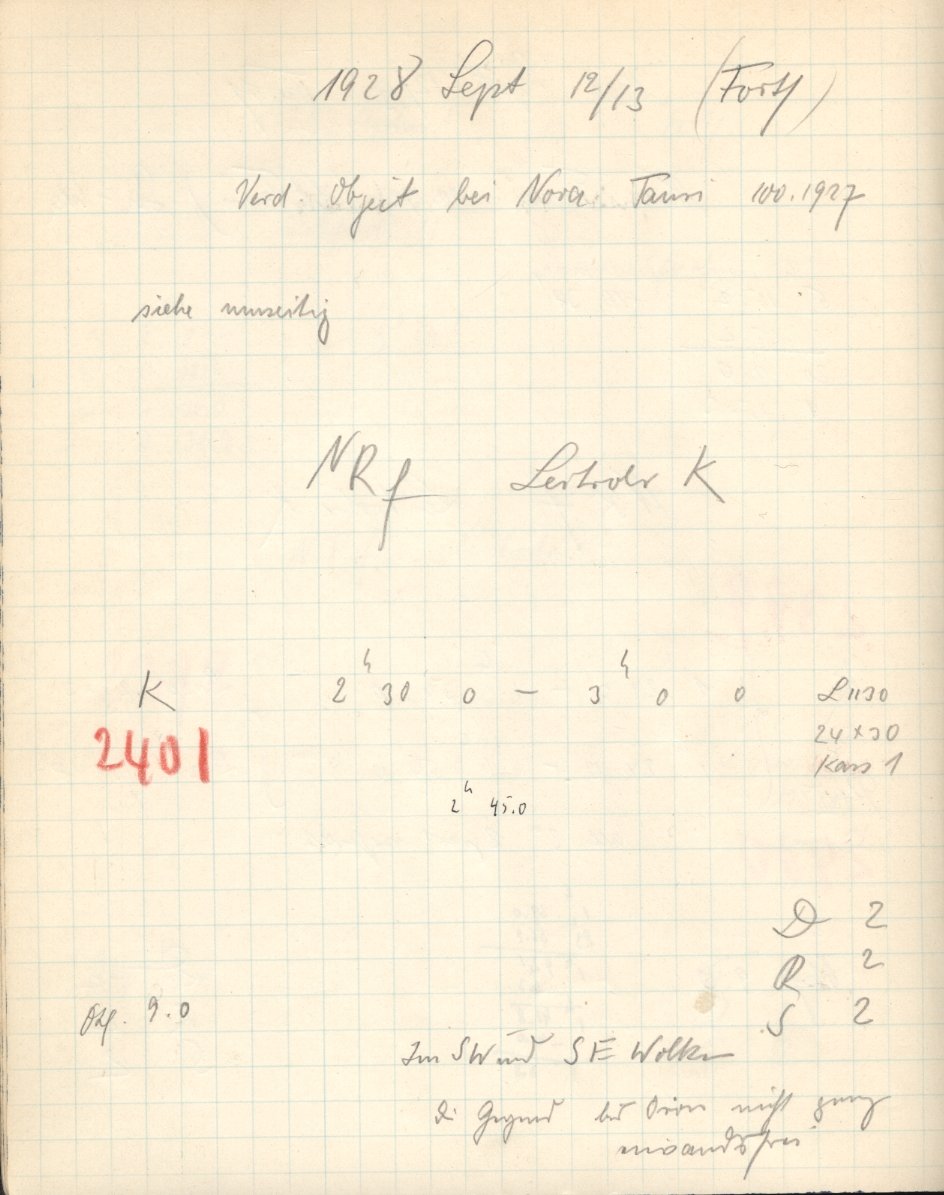 1928 Sept 12/13 (Forts)
Verd. Object bei Nova Tauri 100.1927
siehe umseitig
NR f Leitrohr K
K 2 h 30 0 — 3 h 0 0 L 1130
2401 24 x 30
Kass 1
2 h 45.0
D 2
R 2
S 2
9.0
Im SW und SE Wolken
die Gegend bei Orion nicht ganz
einwandsfrei